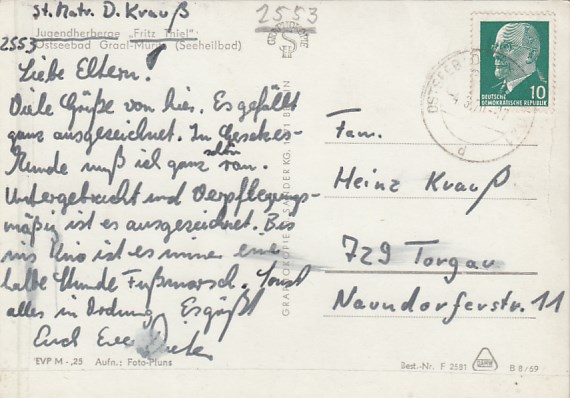 St. Matr. D. Krauß
2553
Jugendherberge „Fritz Thiel"
2553
Ostseebad Graal-Müritz (Seeheilbad)
Liebe Eltern!
Viele Grüße von hier. Es gefällt
ganz ausgezeichnet. In
muß ich ganz schön ran.
Untergebracht und Verpflegungs-
mäßig ist es ausgezeichnet. Bis
ins Kino ist es immer eine
halbe Stunde Fußmarsch. Sonst
alles in Ordnung. Es grüßt
Euch Euer
EVP M -,25 Aufn.: Foto-Pluns
DEUTSCHE
DEMOKRATISCHE REPUBLIK
10
OSTSEEB
Fam.
Heinz Krauß
729 Torgau
Naundorferstr. 11
Best.-Nr. F 2581
B 8/59